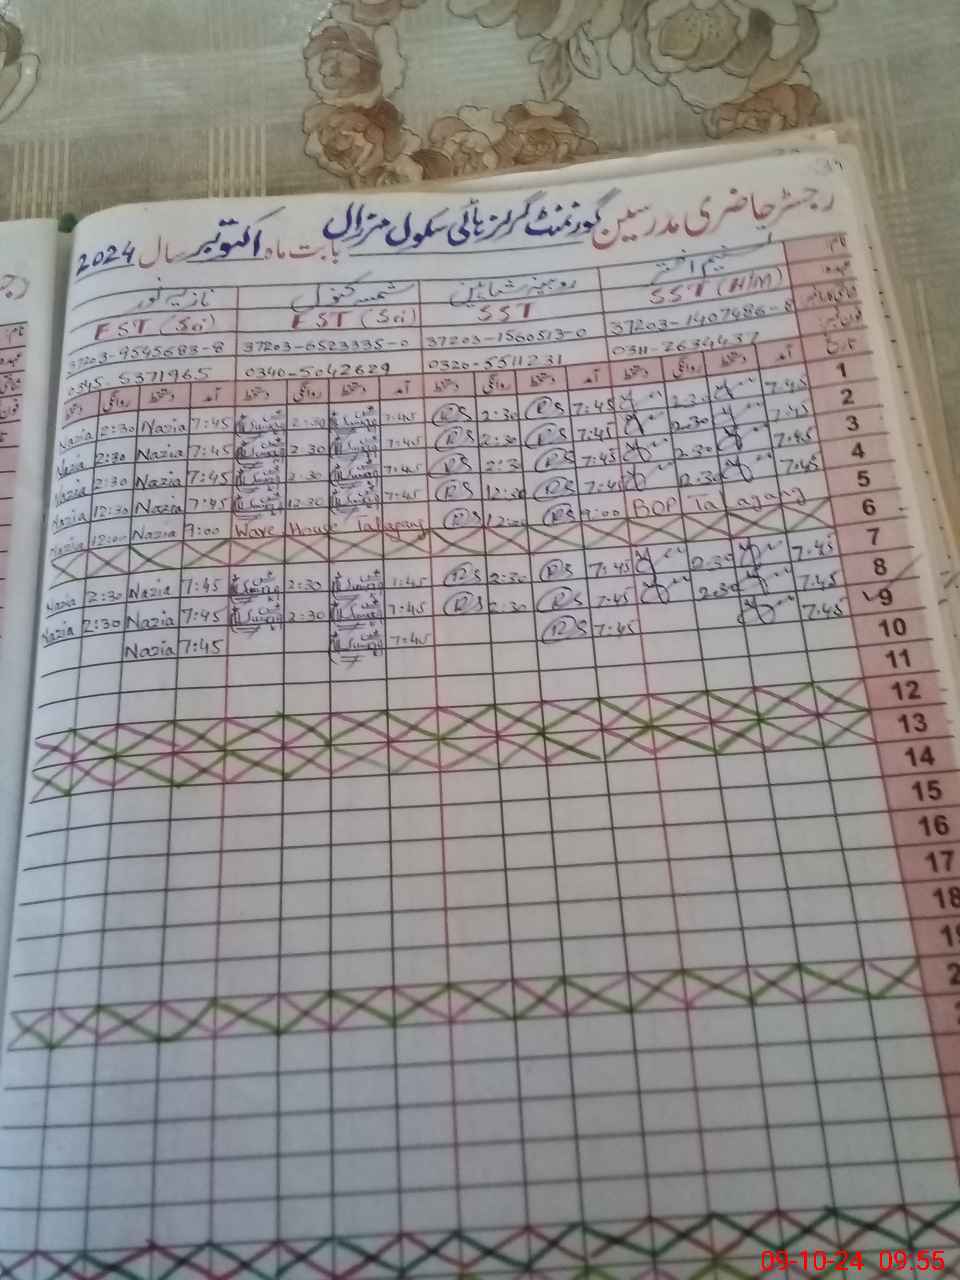 رجسٹر حاضری مدرسین گورنمنٹ گرلز ہائی سکول منزال بابت ماہ اکتوبر سال 2024
تسنیم اختر روبینہ شاہین شمسہ کنول نازیہ نور
SST (H/M) SST EST (Sci) EST (Sci)
37203-1407486-8 37203-1560513-0 37203-6523335-0 37203-9545683-8
0311-2634437 0320-5511231 0340-5042629 0345-5371965
آمد دستخط روانگی دستخط آمد دستخط روانگی دستخط آمد دستخط روانگی دستخط آمد دستخط روانگی دستخط
1 7:45 2:30 7:45 RS 2:30 RS 7:45 2:30 7:45 Nazia 2:30 Nazia
2 7:45 2:30 7:45 RS 2:30 RS 7:45 2:30 7:45 Nazia 2:30 Nazia
3 7:45 2:30 7:45 RS 2:30 RS 7:45 2:30 7:45 Nazia 2:30 Nazia
4 7:45 2:30 7:45 RS 12:30 RS 7:45 12:30 7:45 Nazia 12:30 Nazia
5 BOP Talagang 9:00 RS 12:00 RS Ware House Talagang 9:00 Nazia 12:00 Nazia
6
7 7:45 2:30 7:45 RS 2:30 RS 7:45 2:30 7:45 Nazia 2:30 Nazia
8 7:45 2:30 7:45 RS 2:30 RS 7:45 2:30 7:45 Nazia 2:30 Nazia
9 7:45 7:45 RS 7:45 7:45 Nazia
10
11
12
13
14
15
16
17
18
09-10-24 09:55